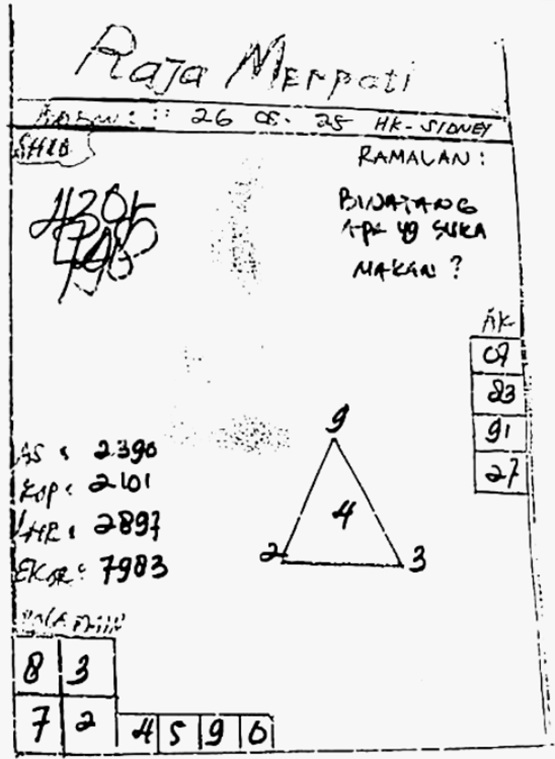 Raja Merpati
: 26 08. 25 HK-SIDNEY
RAMALAN:
BINATANG
APA yg SUKA
MAKAN ?
AK
07
83
91
27
AS : 2390
KOP : 2101
: 2897
EKOR : 7983
9
4
2 3
8 3
7 2
4 5 9 0